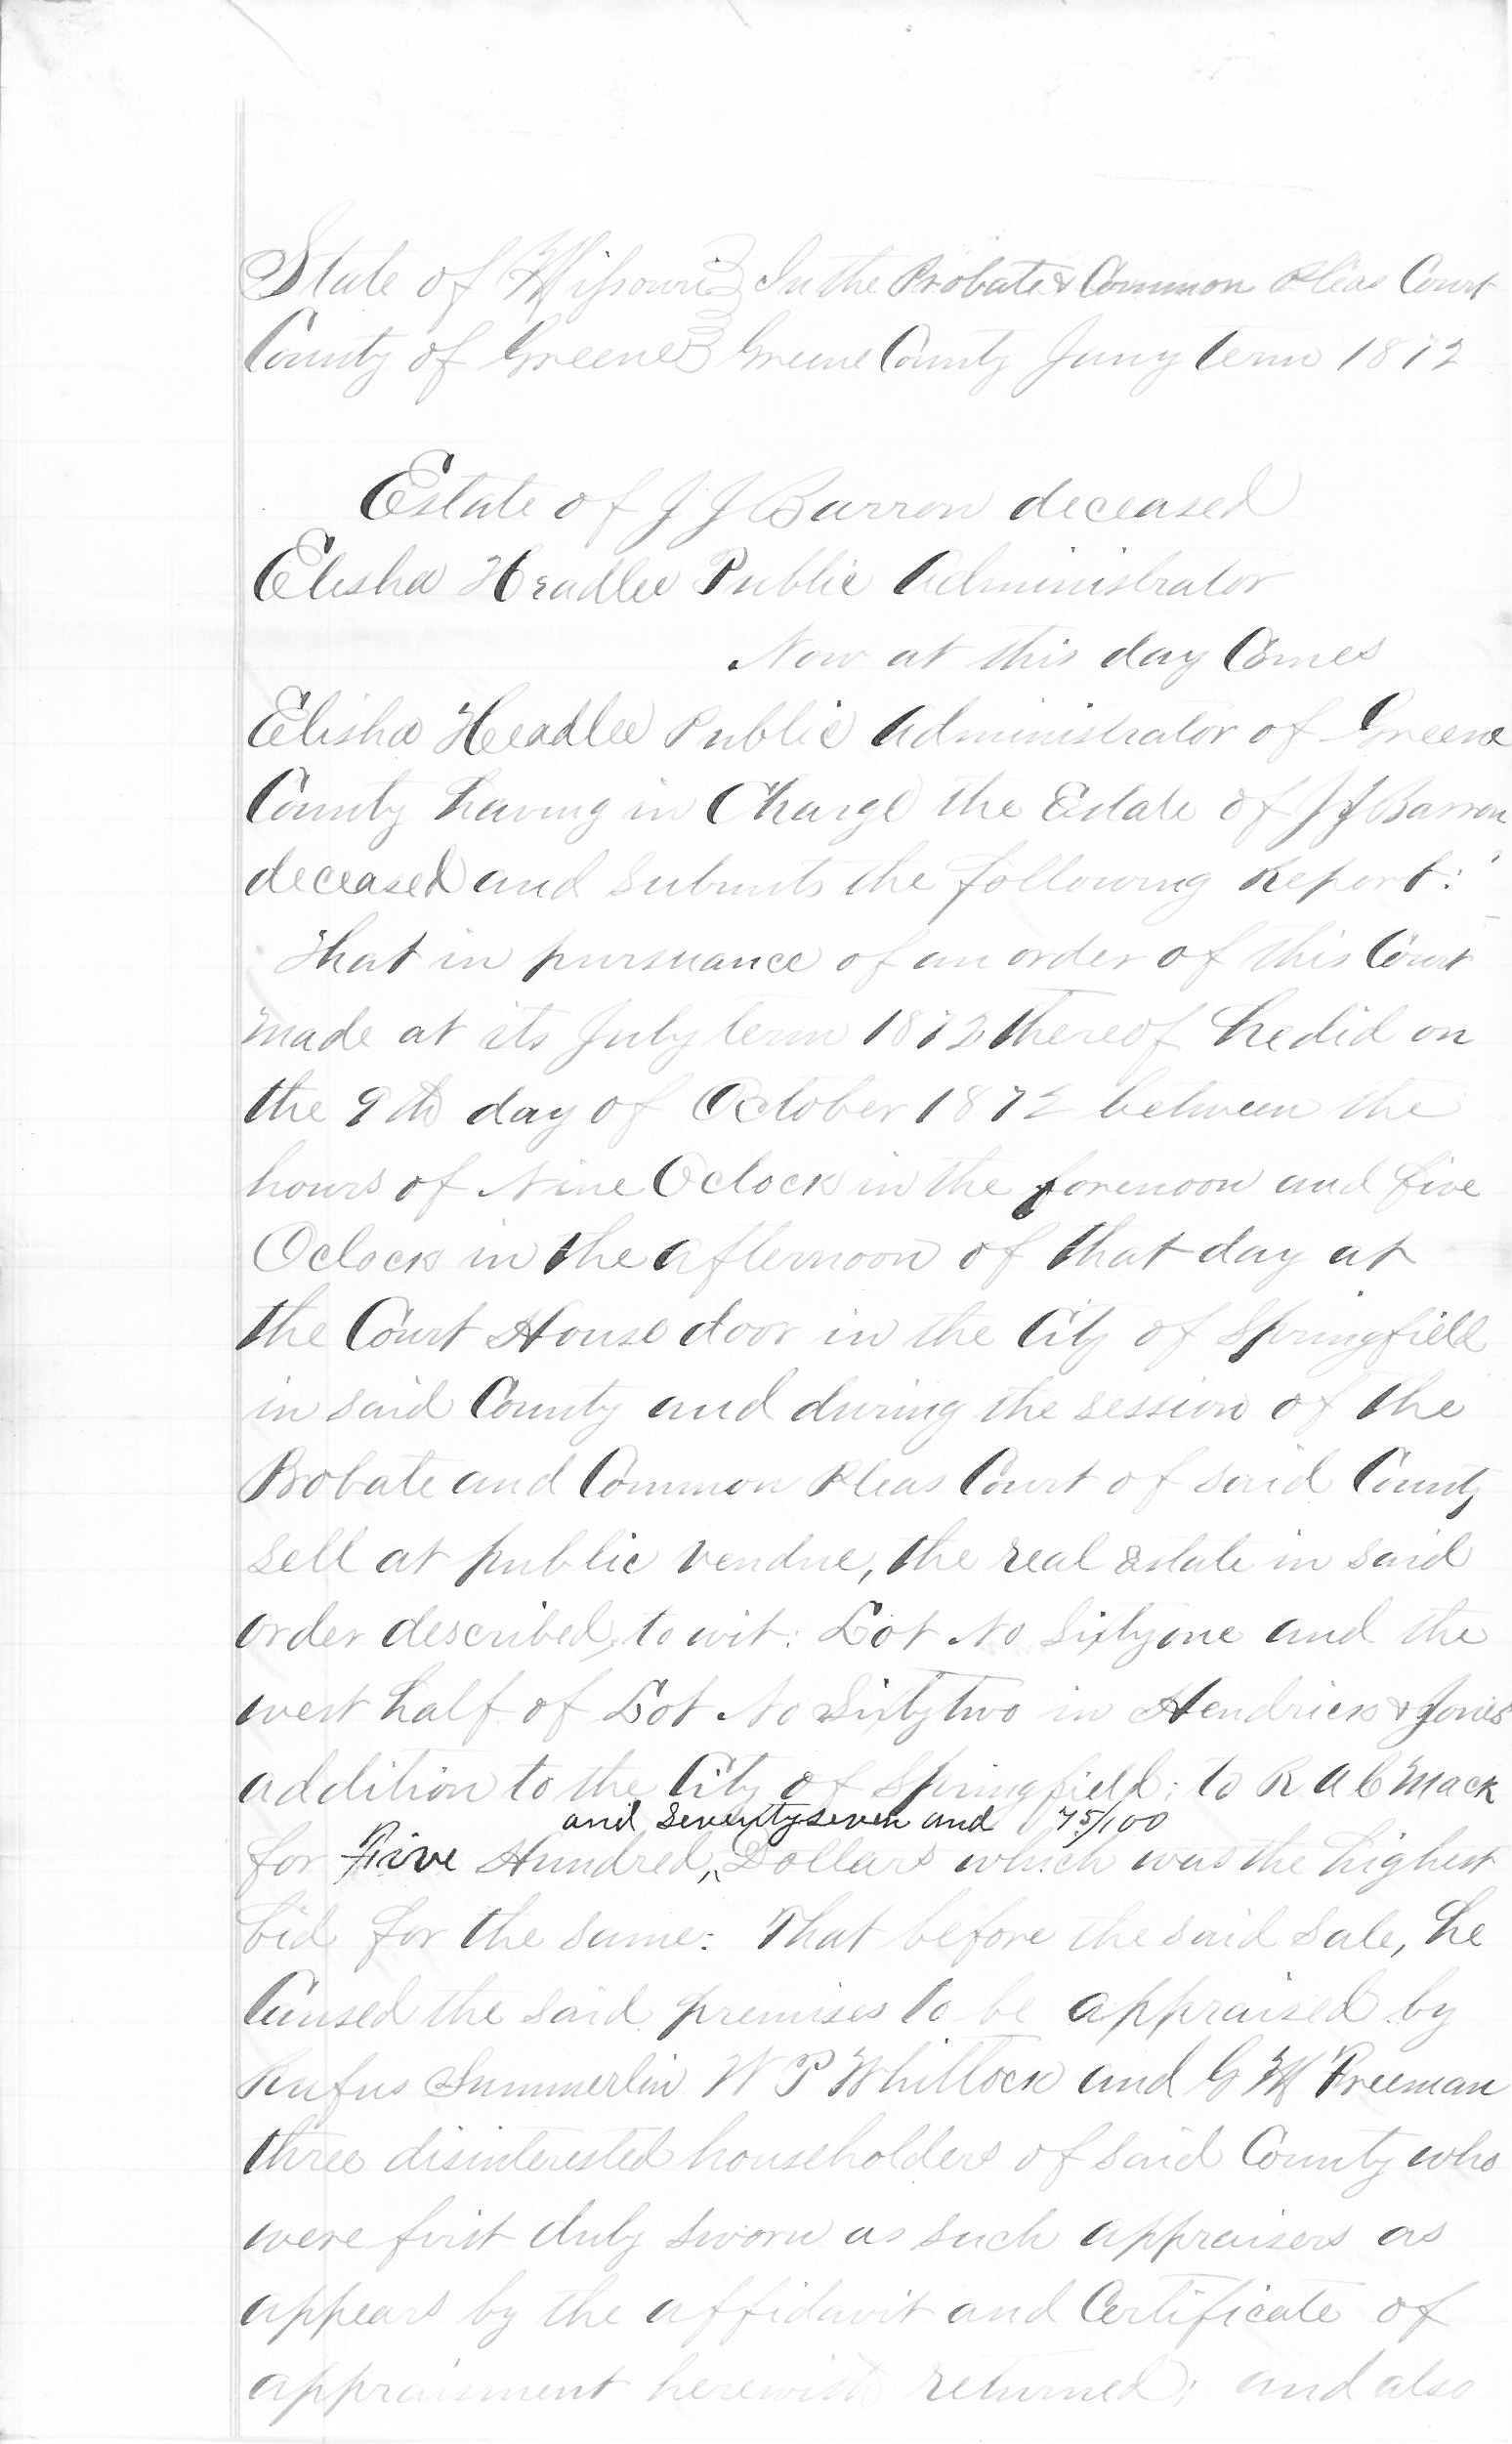 State of Missouri } In the Probate & Common Pleas Court
County of Greene } Greene County Jany term 1872
Estate of J J Barron deceased
Elisha Headlee Public Administrator
Now at this day Comes
Elisha Headlee Public Administrator of Greene
County having in Charge the Estate of J J Barron
deceased and Submits the following Report:
That in pursuance of an order of this Court
made at its July term 1872 thereof he did on
the 9th day of October 1872 between the
hours of Nine Oclock in the forenoon and five
Oclock in the afternoon of that day at
the Court House door in the City of Springfield
in said County and during the session of the
Probate and Common Pleas Court of said County
sell at public vendue, the real Estate in said
order described, to wit: Lot No Sixtyone and the
west half of Lot No Sixtytwo in Hendrick & Jones
addition to the City of Springfield; to R A C Mack
and seventyseven and 75/100
for Five Hundred, Dollars which was the highest
bid for the same: That before the said sale, he
Caused the said premises to be appraised by
Rufus Summerlin W P Whitlock and G M Freeman
three disinterested householders of said County who
were first duly sworn as such appraisers as
appears by the affidavit and Certificate of
appraisment herewith returned; and also